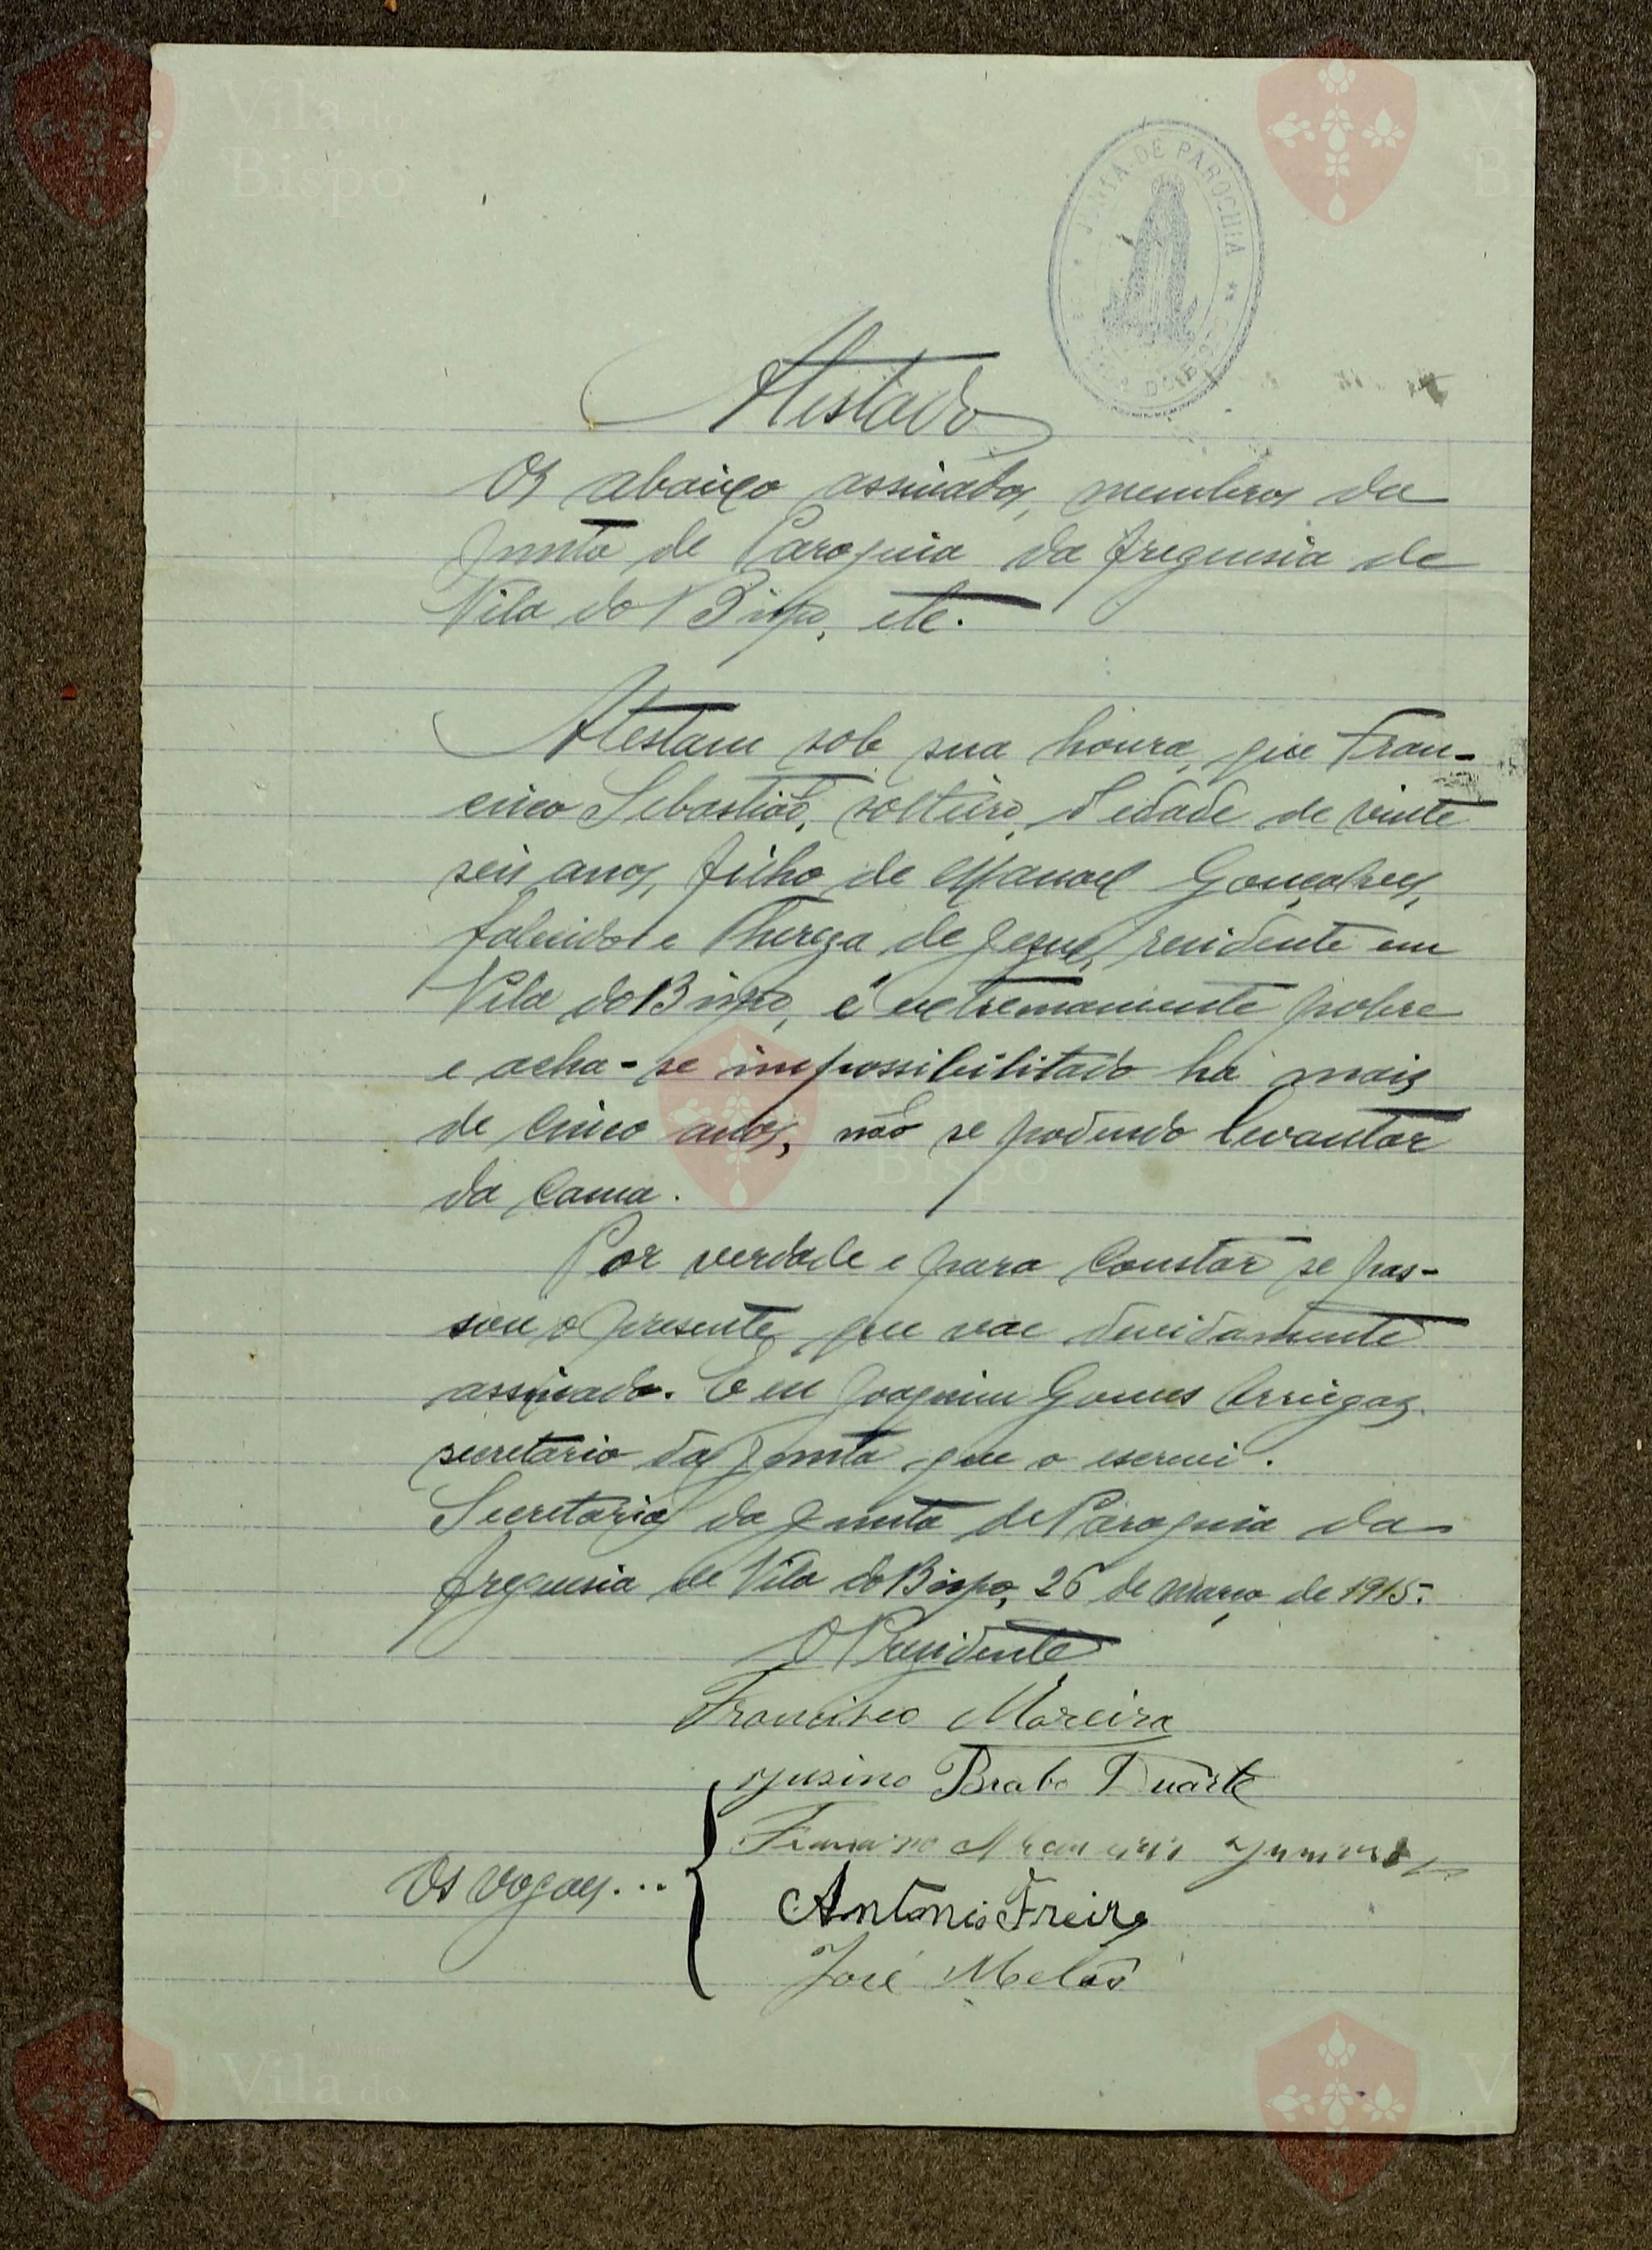 Vila do
Bispo
JUNTA DE PAROCHIA
VILA DO BISPO
Atestado
Os abaixo assinados, membros da
Junta de Paroquia da freguesia de
Vila do Bispo, etc.
Atestam sob sua honra, que Fran-
cisco Sebastião, solteiro, d'edade de vinte
seis anos, filho de Manoel Gonçalves,
falecido e Thereza de Jesus, residente em
Vila do Bispo, é extremamente pobre
e acha-se impossibilitado ha mais
de cinco anos, não se podendo levantar
da cama.
Por verdade e para constar se pas-
sou o presente, que vae devidamente
assinado. E eu Joaquim Gomes Arriegas
secretario da Junta que o escrevi.
Secretaria da Junta de Paroquia da
freguesia de Vila do Bispo, 26 de março de 1915.
O Presidente
Francisco Moreira
Brabo Duarte
Os vogaes... Francisco
Antonio Freire
José Melão
Vila do
Bispo